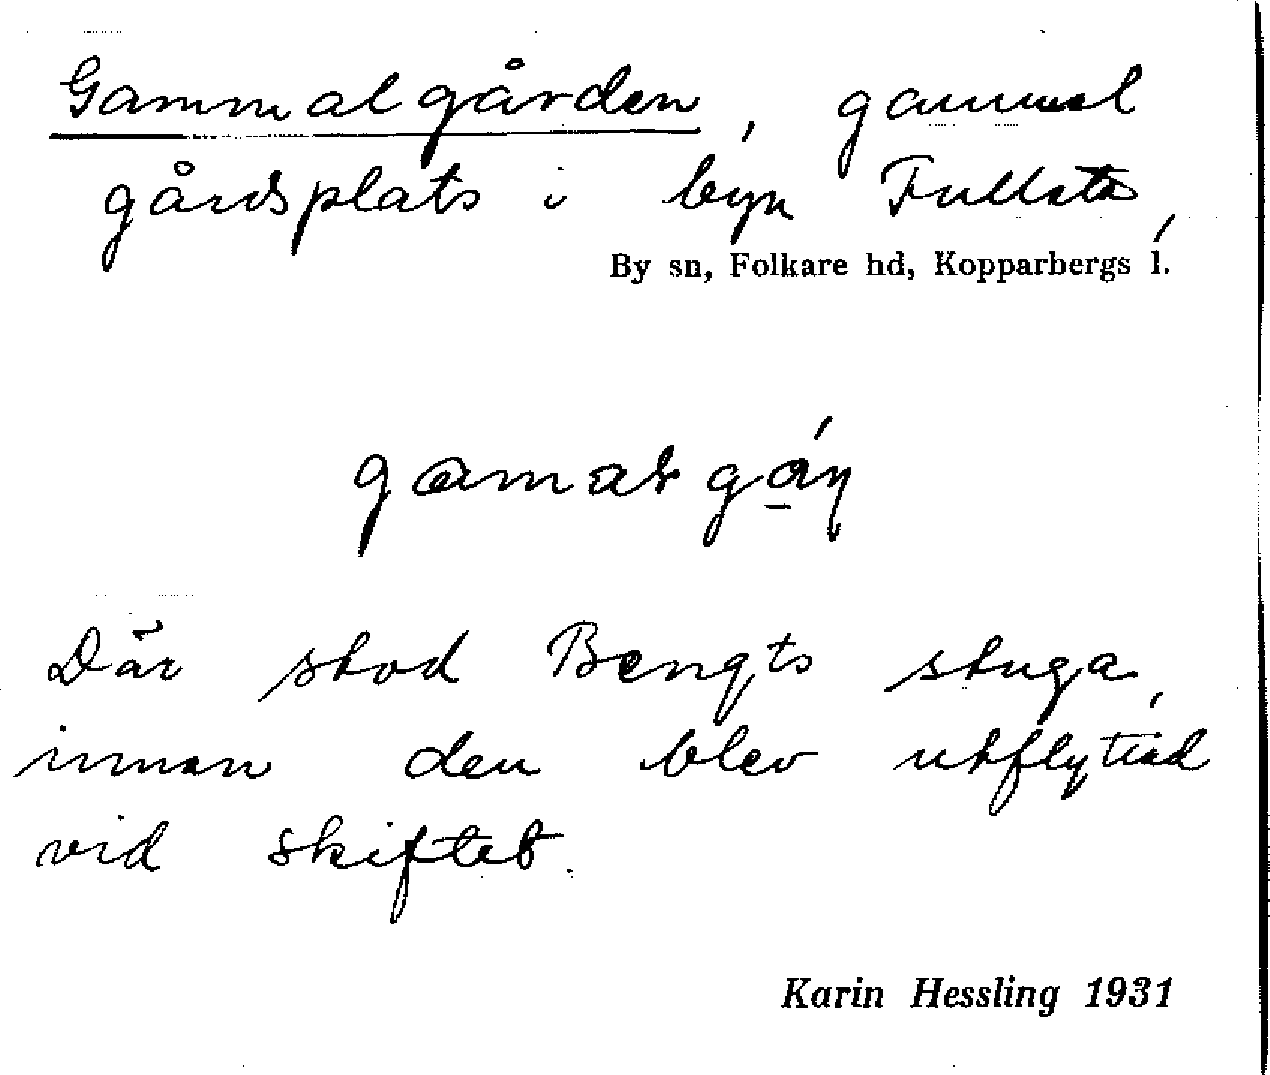 Gammalgården, gammal
gårdsplats i byn Fullsta,
By sn, Folkare hd, Kopparbergs l.
Där stod Bengts stuga,
innan den blev utflyttad
vid skiftet.
Karin Hessling 1931